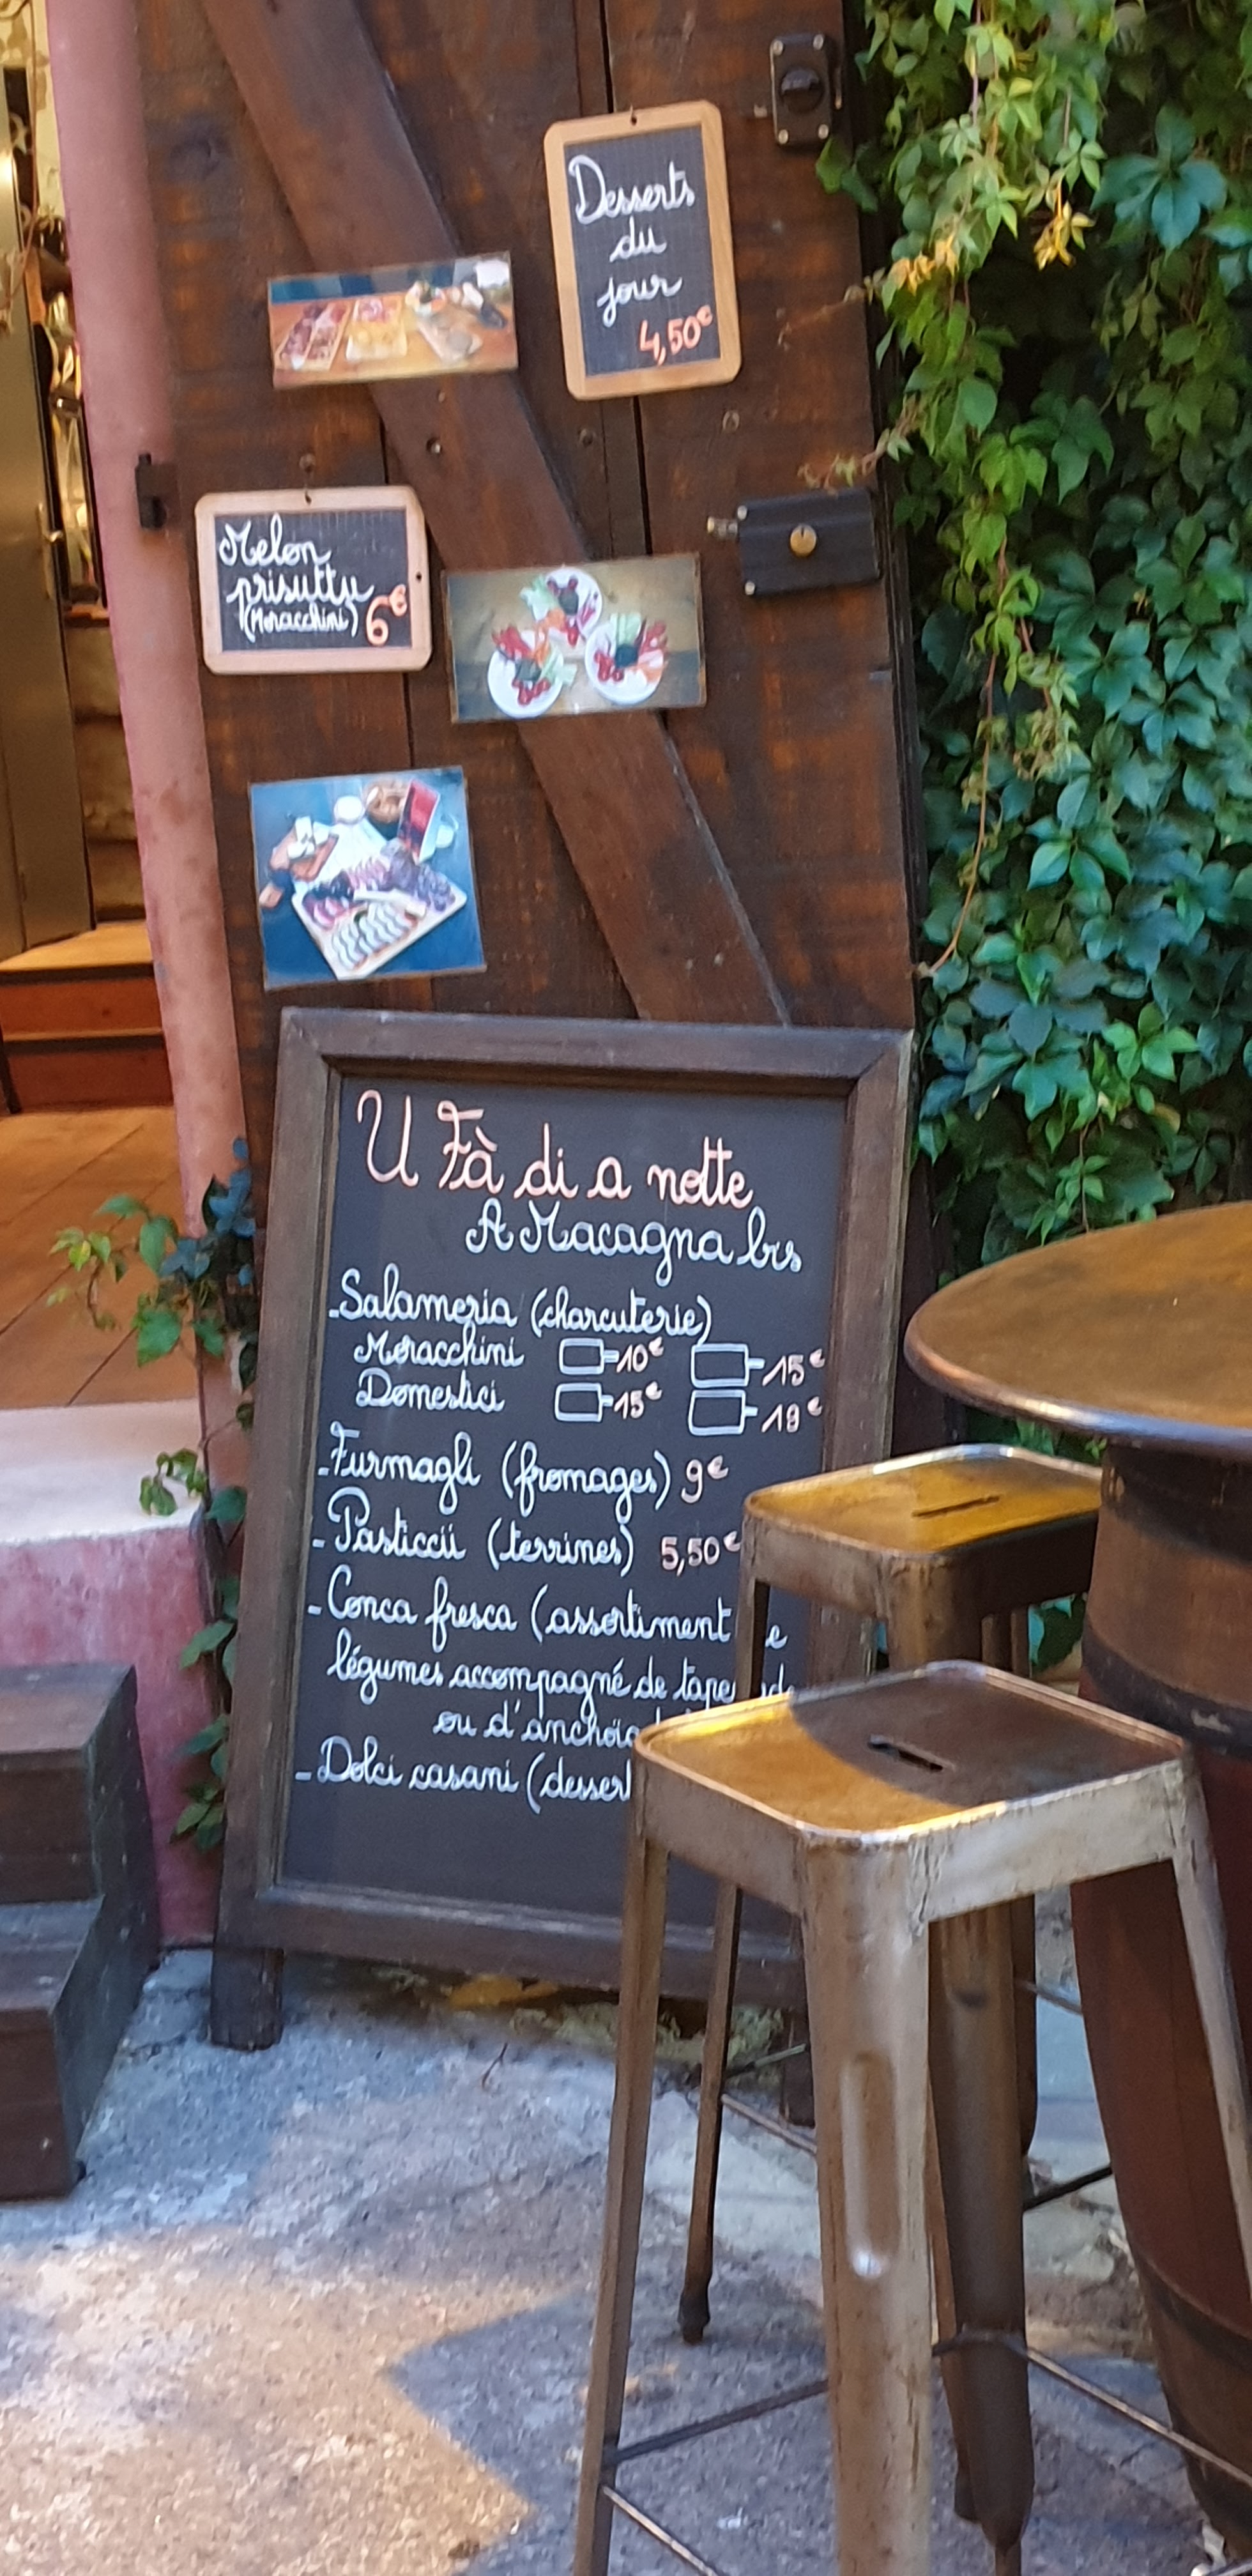 Desserts
du
jour
4,50€
Melon
prisuttu
(Moracchini) 6€
U Fà di a notte
A Macagna bis
- Salameria (charcuterie)
Moracchini 10€ 15€
Domestici 15€ 19€
- Furmagli (fromages) 9€
- Pasticcii (terrines) 5,50€
- Conca fresca (assortiment
légumes accompagné de
ou d'
- Dolci casani (